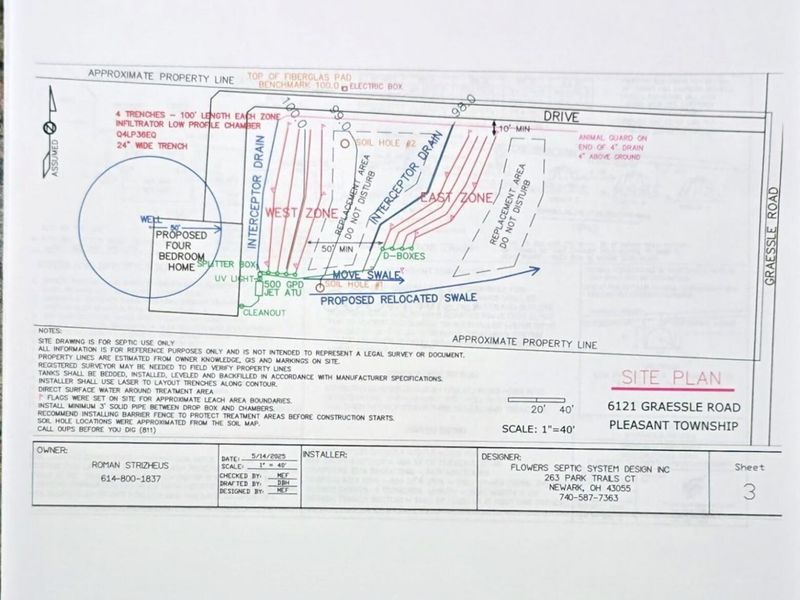 APPROXIMATE PROPERTY LINE
TOP OF FIBERGLAS PAD
BENCHMARK 100.0
ELECTRIC BOX
4 TRENCHES - 100' LENGTH EACH ZONE
INFILTRATOR LOW PROFILE CHAMBER
Q4LP36EQ
24" WIDE TRENCH
ASSUMED
100.0
99.0
98.0
DRIVE
10' MIN
ANIMAL GUARD ON
END OF 4" DRAIN
4" ABOVE GROUND
SOIL HOLE #2
INTERCEPTOR DRAIN
WEST ZONE
REPLACEMENT AREA
DO NOT DISTURB
INTERCEPTOR DRAIN
EAST ZONE
REPLACEMENT AREA
DO NOT DISTURB
GRAESSLE ROAD
WELL
50'
PROPOSED
FOUR
BEDROOM
HOME
50' MIN
D-BOXES
SPLITTER BOX
UV LIGHT
500 GPD
JET ATU
MOVE SWALE
SOIL HOLE #1
PROPOSED RELOCATED SWALE
CLEANOUT
APPROXIMATE PROPERTY LINE
NOTES:
SITE DRAWING IS FOR SEPTIC USE ONLY
ALL INFORMATION IS FOR REFERENCE PURPOSES ONLY AND IS NOT INTENDED TO REPRESENT A LEGAL SURVEY OR DOCUMENT.
PROPERTY LINES ARE ESTIMATED FROM OWNER KNOWLEDGE, GIS AND MARKINGS ON SITE.
REGISTERED SURVEYOR MAY BE NEEDED TO FIELD VERIFY PROPERTY LINES
TANKS SHALL BE BEDDED, INSTALLED, LEVELED AND BACKFILLED IN ACCORDANCE WITH MANUFACTURER SPECIFICATIONS.
INSTALLER SHALL USE LASER TO LAYOUT TRENCHES ALONG CONTOUR.
DIRECT SURFACE WATER AROUND TREATMENT AREA
FLAGS WERE SET ON SITE FOR APPROXIMATE LEACH AREA BOUNDARIES.
INSTALL MINIMUM 3' SOLID PIPE BETWEEN DROP BOX AND CHAMBERS.
RECOMMEND INSTALLING BARRIER FENCE TO PROTECT TREATMENT AREAS BEFORE CONSTRUCTION STARTS.
SOIL HOLE LOCATIONS WERE APPROXIMATED FROM THE SOIL MAP.
CALL OUPS BEFORE YOU DIG (811)
20' 40'
SCALE: 1"=40'
SITE PLAN
6121 GRAESSLE ROAD
PLEASANT TOWNSHIP
OWNER:
ROMAN STRIZHEUS
614-800-1837
DATE: 5/14/2025
SCALE: 1" = 40'
CHECKED BY: MEF
DRAFTED BY: DBH
DESIGNED BY: MEF
INSTALLER:
DESIGNER:
FLOWERS SEPTIC SYSTEM DESIGN INC
263 PARK TRAILS CT
NEWARK, OH 43055
740-587-7363
Sheet
3